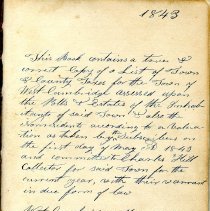 1843
This Book contains a true &
correct Copy of a List of Town
& County Taxes for the Town of
West Cambridge assessed upon
the Polls & Estates of the Inhab-
itants of said Town & also the
Non residents according to a valua-
tion as taken by the Subscribers on
the first day of May A D 1843
and committed to Charles Hill
Collector for said Town for the
current year, with their warrant
in due form of law
West Cambridge